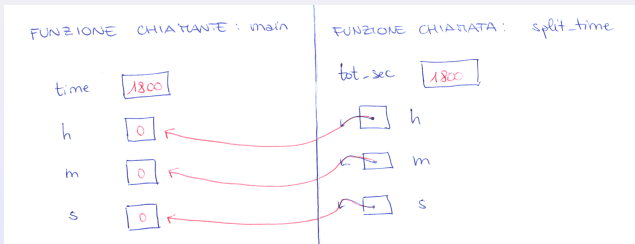 FUNZIONE CHIAMANTE: main
time 1800
h 0
m 0
s 0
FUNZIONE CHIAMATA: split_time
tot_sec 1800
h
m
s